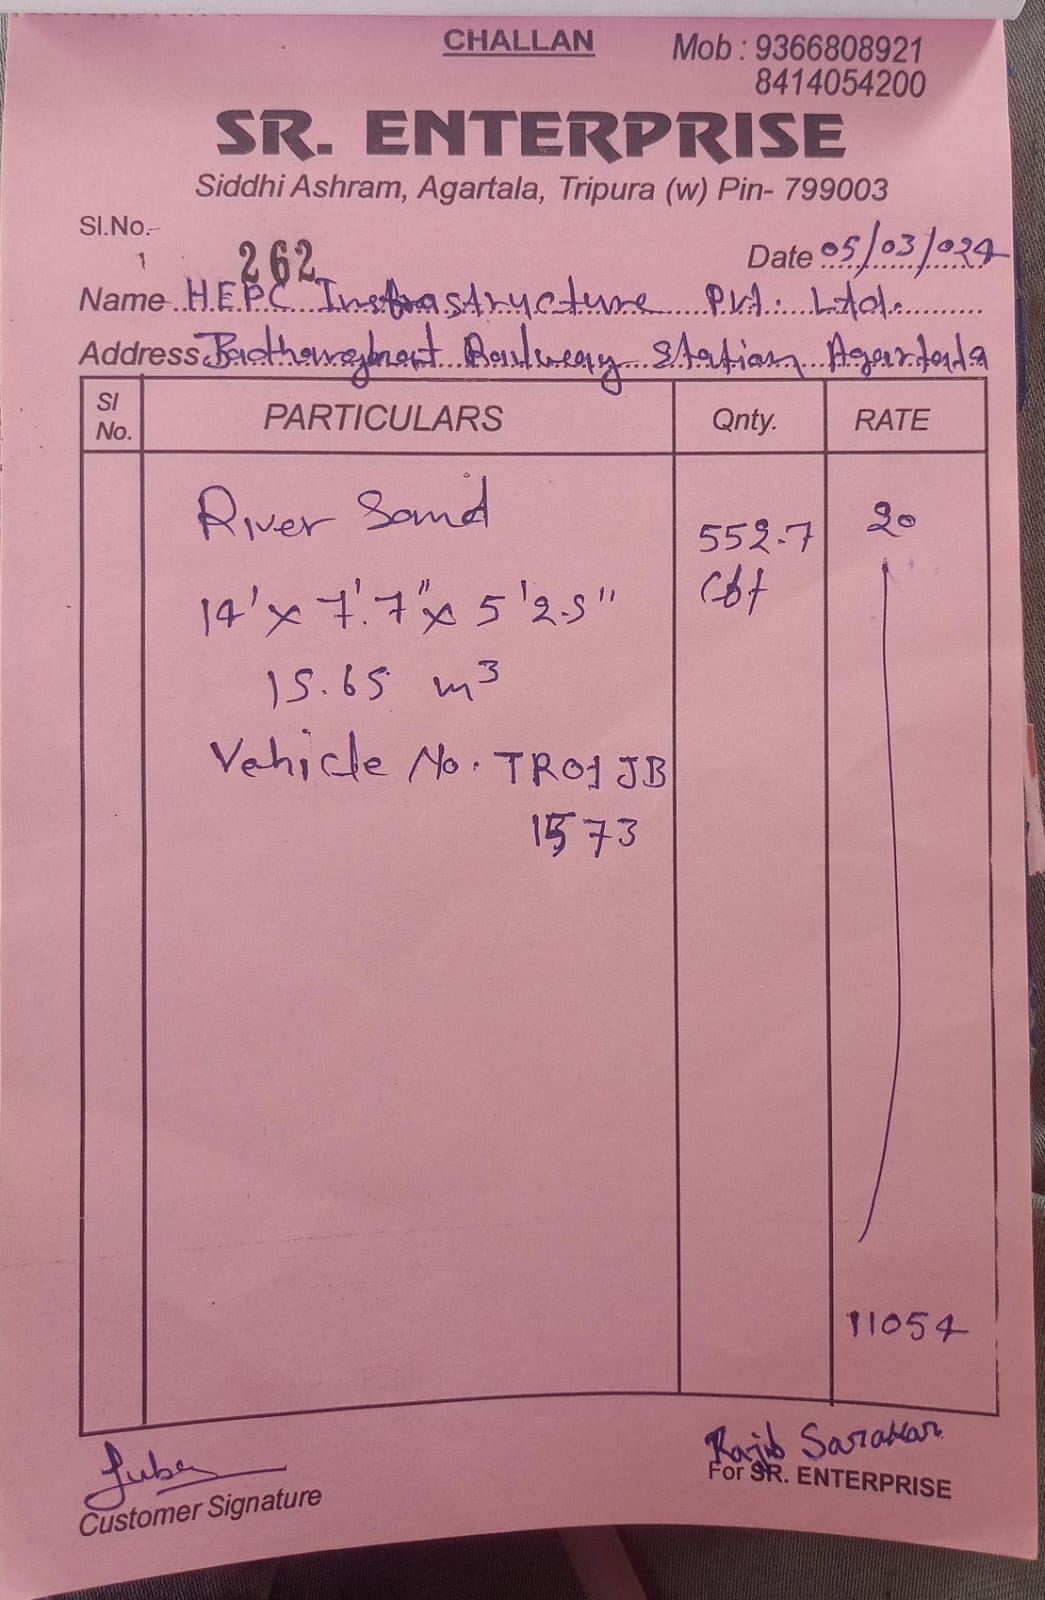 CHALLAN
Mob : 9366808921
8414054200
SR. ENTERPRISE
Siddhi Ashram, Agartala, Tripura (w) Pin- 799003
Sl.No.-
262
Date 05/03/024
Name HEPC Infrastructure Pvt. Ltd.
Address Badharghat Railway Station Agartala
Sl No. PARTICULARS Qnty. RATE
River Sand 552.7 20
14' x 7'.7" x 5'2.5" Cbf
15.65 m³
Vehicle No. TR01 JB
1573
11054
Rajib Sarakar
Customer Signature For SR. ENTERPRISE